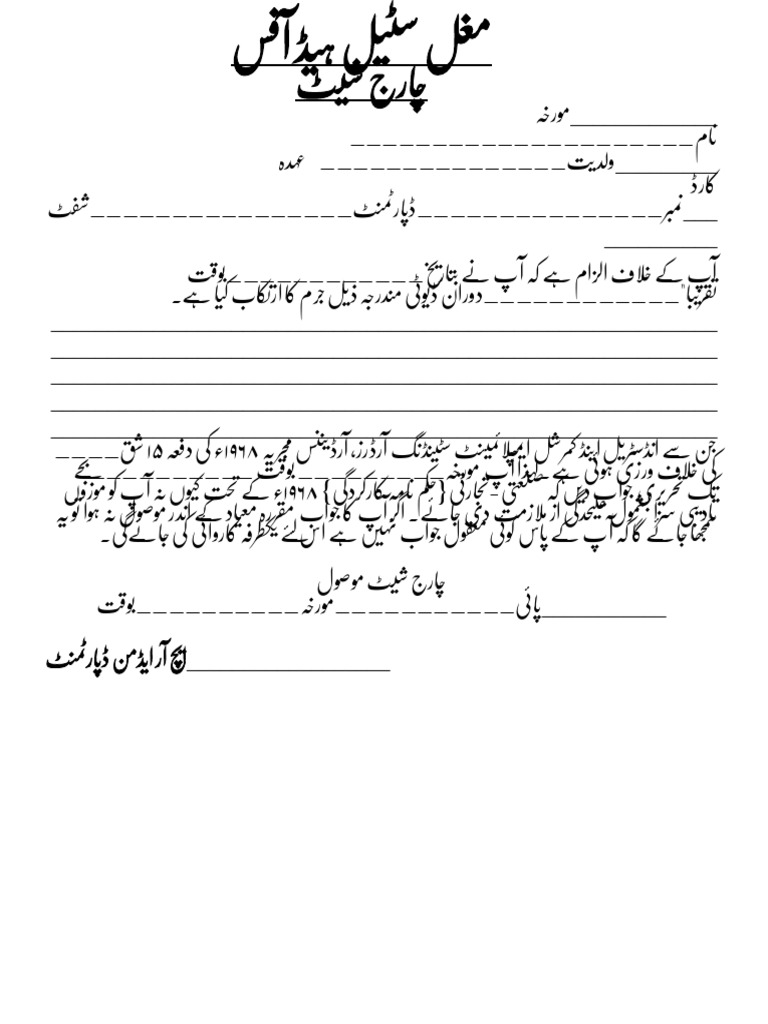 مغل سٹیل ہیڈ آفس
چارج شیٹ
مورخہ_____________
نام_____________________
ولدیت_______________ عہدہ_________
کارڈ
نمبر_______________ڈپارٹمنٹ________________شفٹ___
__________
آپ کے خلاف الزام ہے کہ آپ نے بتاریخ____________بوقت
تقریباً____________دوران ڈیوٹی مندرجہ ذیل جرم کا ارتکاب کیا ہے۔
جن سے انڈسٹریل اینڈ کمرشل ایمپلائمینٹ سٹینڈنگ آرڈرز، آرڈیننس مجریہ ۱۹۶۸ء کی دفعہ ۱۵ شق____
کی خلاف ورزی ہوتی ہے - لہذا آپ مورخہ_________بوقت_________بجے
تک تحریری جواب دیں کہ صنعتی- تجارتی {حکم نامہ سکارکردگی} ۱۹۶۸ء کے تحت کیوں نہ آپ کو موزوں
تادیبی سزا بشمول علیحدگی از ملازمت دی جائے۔ اگر آپ کا جواب مقررہ معیاد کے اندر موصول نہ ہوا تو یہ
سمجھا جائے گا کہ آپ کے پاس کوئی معقول جواب نہیں ہے اس لئے یکطرفہ کاروائی کی جائے گی۔
چارج شیٹ موصول
پائی___________مورخہ__________بوقت___________
ایچ آر ایڈمن ڈپارٹمنٹ__________________